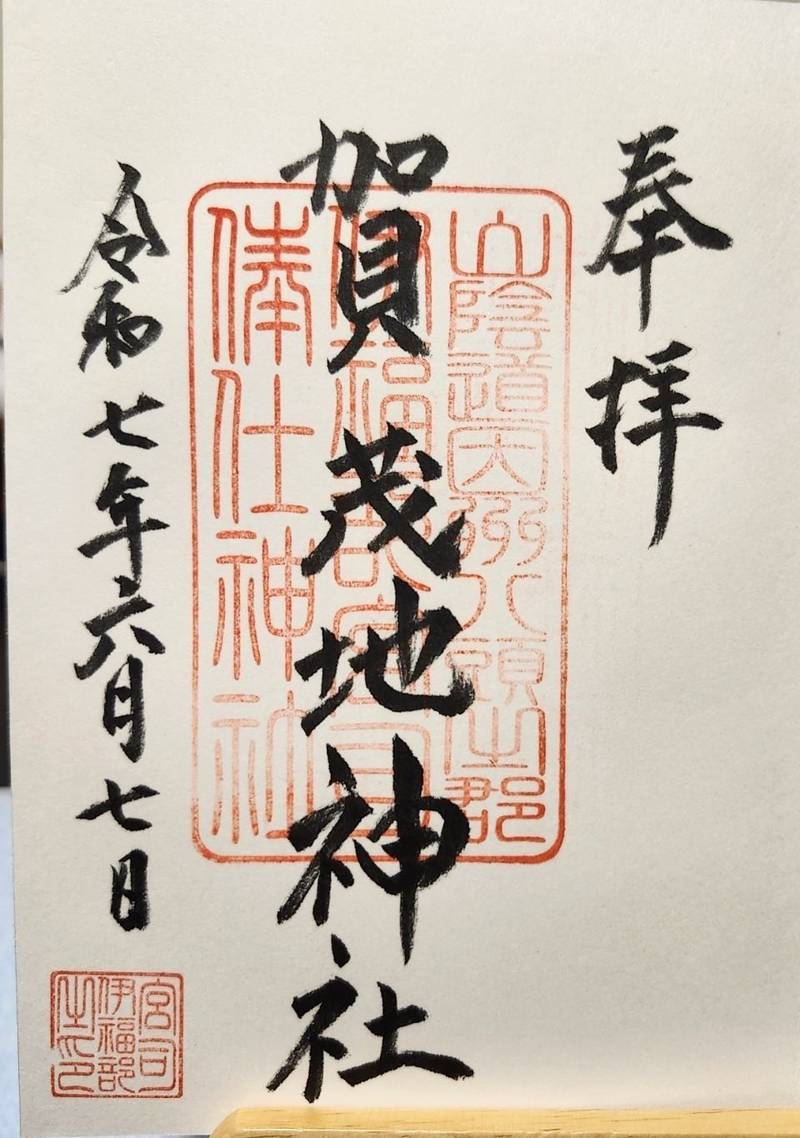 奉拝
賀茂地神社
令和七年六月七日
山陰道因州八頭之郡
伊福部
俸仕神社
宮司
伊福部
之印